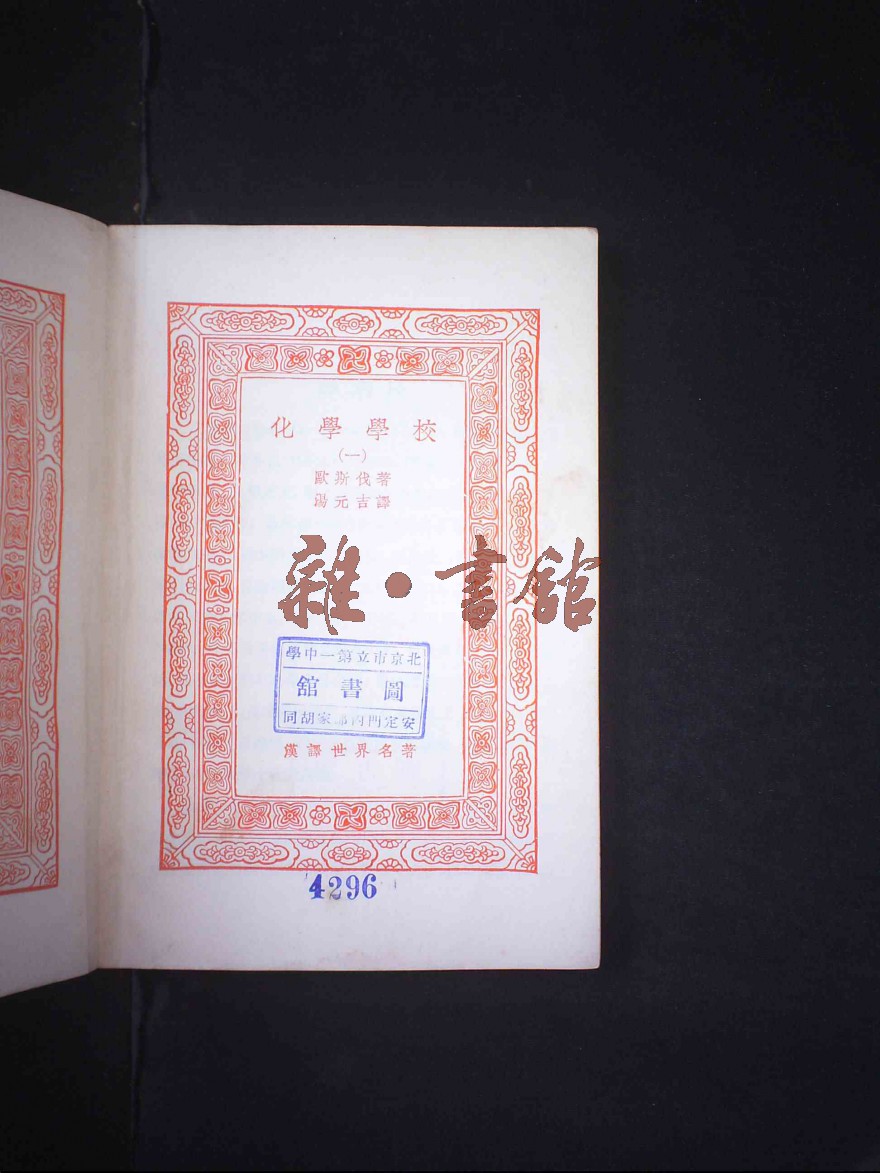 化學學校
(一)
歐斯伐著
湯元吉譯
雜·書館
北京市立第一中學
圖書館
安定門內郎家胡同
漢譯世界名著
4296